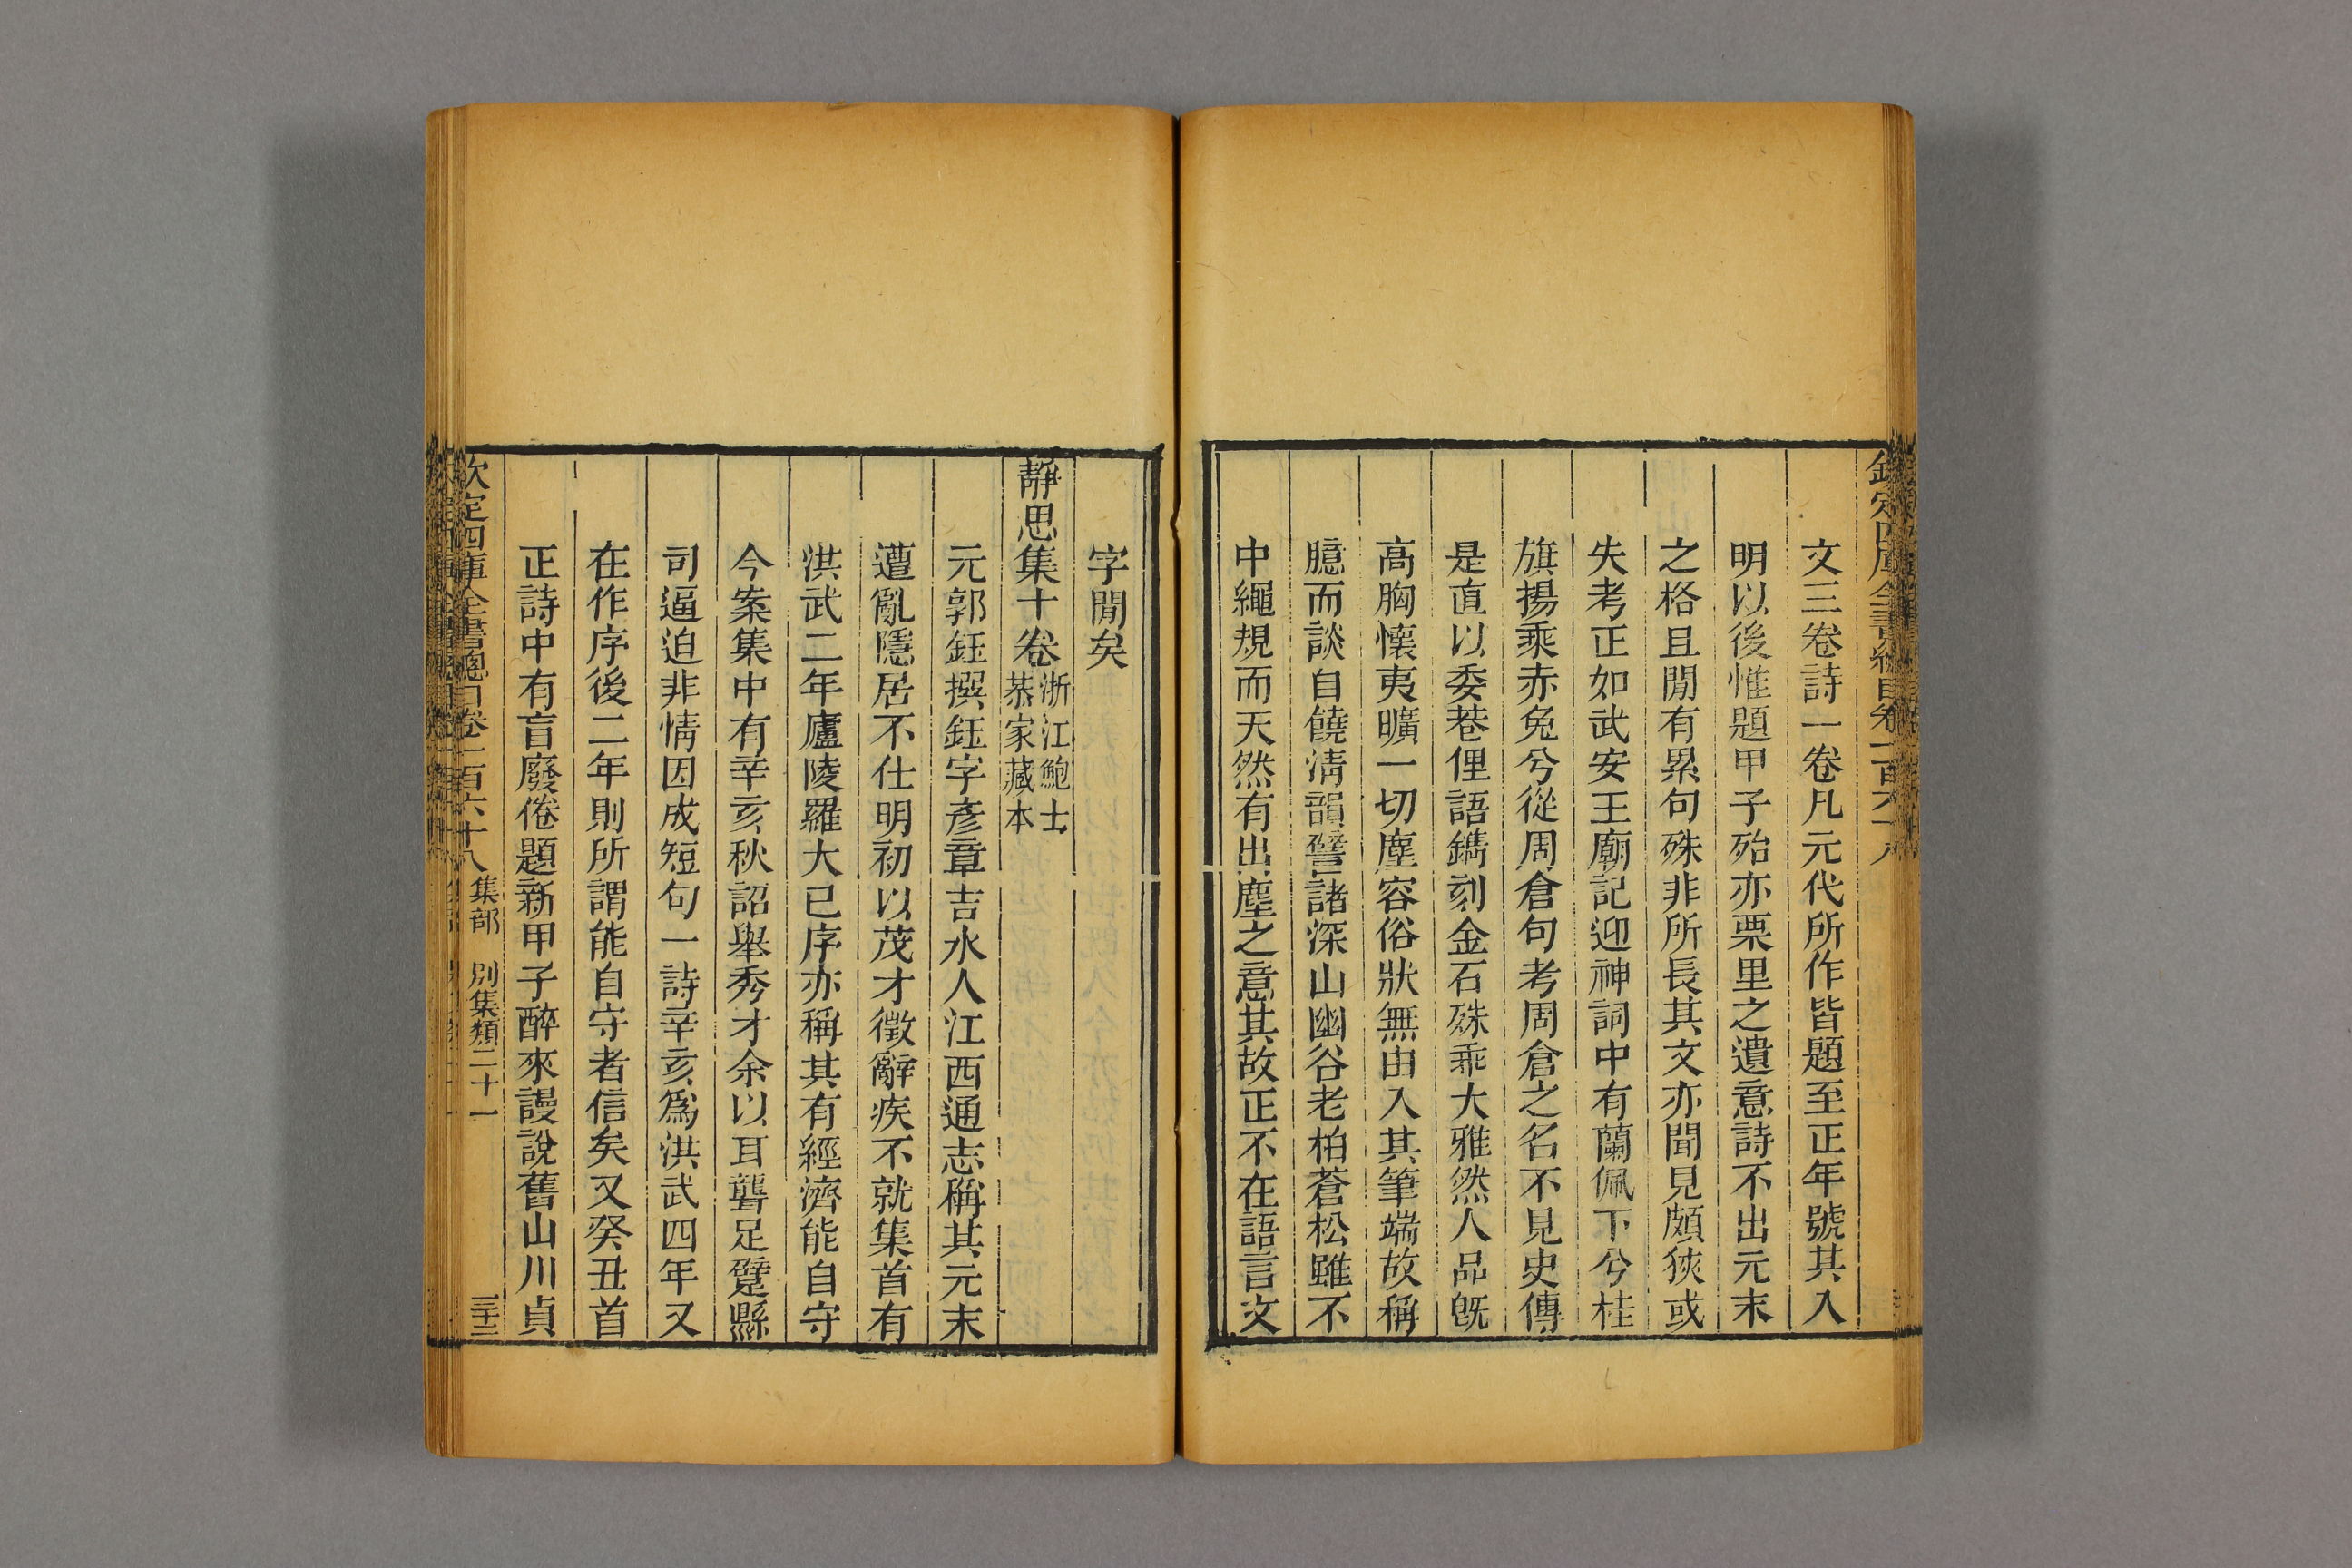 文三卷詩一卷凡元代所作皆題至正年號其入
明以後惟題甲子殆亦栗里之遺意詩不出元末
之格且閒有累句殊非所長其文亦聞見頗狹或
失考正如武安王廟記迎神詞中有蘭佩下兮桂
旗揚乘赤兔兮從周倉句考周倉之名不見史傳
是直以委巷俚語鐫刻金石殊乖大雅然人品旣
高胸懷夷曠一切塵容俗狀無由入其筆端故稱
臆而談自饒淸韻譬諸深山幽谷老柏蒼松雖不
中繩規而天然有出塵之意其故正不在語言文
字閒矣
靜思集十卷浙江鮑士恭家藏本
元郭鈺撰鈺字彥章吉水人江西通志稱其元末
遭亂隱居不仕明初以茂才徵辭疾不就集首有
洪武二年廬陵羅大已序亦稱其有經濟能自守
今案集中有辛亥秋詔舉秀才余以耳聾足躄縣
司逼迫非情因成短句一詩辛亥爲洪武四年又
在作序後二年則所謂能自守者信矣又癸丑首
正詩中有盲廢倦題新甲子醉來謾說舊山川貞
欽定四庫全書總目卷一百六十八 集部 別集類二十一 三十二